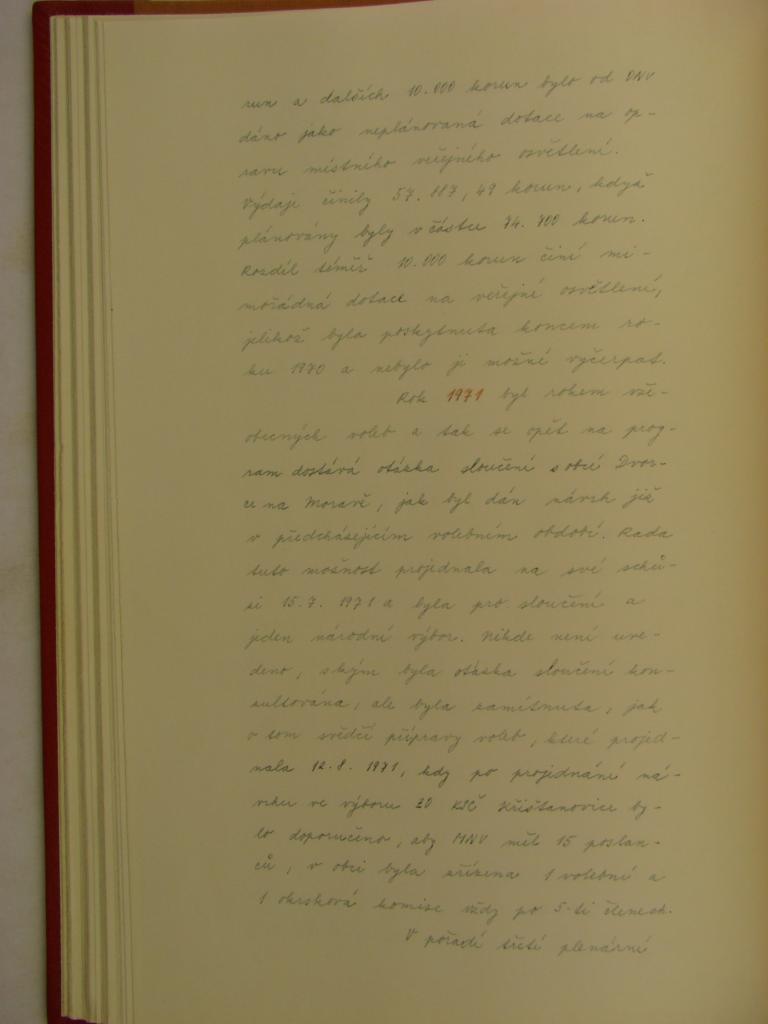 run a dalších 10.000 korun bylo od ONV
dáno jako neplánovaná dotace na op-
ravu místního veřejného osvětlení.
Výdaje činily 57.887,49 korun, když
plánovány byly v částce 74.700 korun.
Rozdíl téměř 10.000 korun činí mi-
mořádná dotace na veřejné osvětlení,
jelikož byla poskytnuta koncem ro-
ku 1970 a nebylo ji možné vyčerpat.
Rok 1971 byl rokem vše-
obecných voleb a tak se opět na prog-
ram dostává otázka sloučení s obcí Dvor-
ce na Moravě, jak byl dán návrh již
v předcházejícím volebním období. Rada
tuto možnost projednala na své schů-
zi 15.7. 1971 a byla pro sloučení a
jeden národní výbor. Nikde není uve-
deno, s kým byla otázka sloučení kon-
zultována, ale byla zamítnuta, jak
o tom svědčí přípravy voleb, které projed-
nala 12.8. 1971, kdy po projednání ná-
vrhu ve výboru ZO KSČ Křišťanovice by-
lo doporučeno, aby MNV měl 15 poslan-
ců, v obci byla zřízena 1 volební a
1 okrsková komise vždy po 5-ti členech.
V pořadí třetí plenární